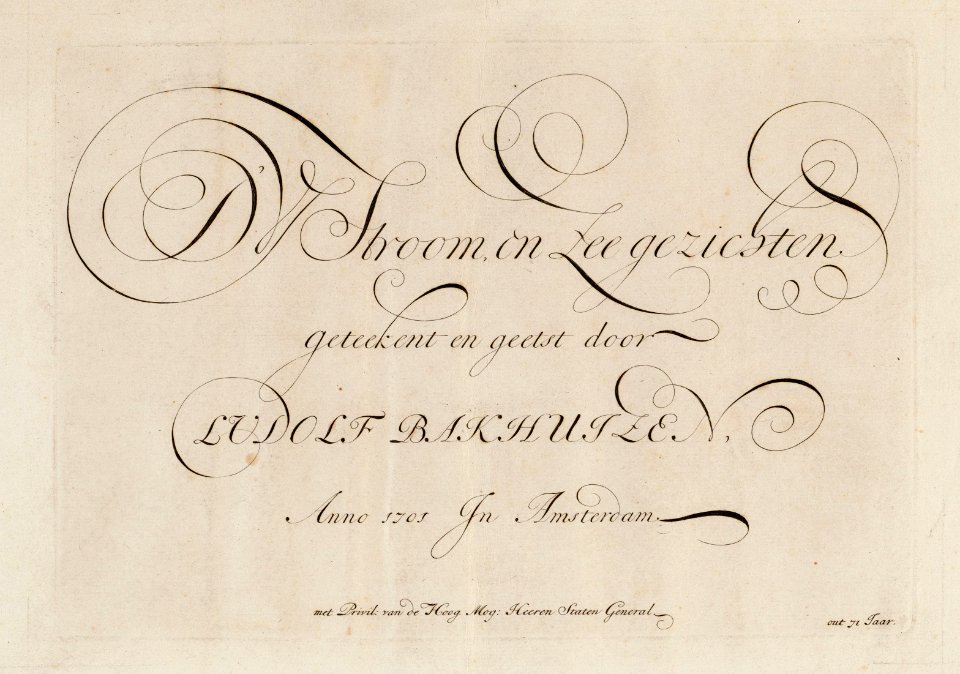 D'Y Stroom, en Zee gezichten.
Geteekent en geetst door
LUDOLF BAKHUIZEN,
Anno 1701 In Amsterdam.
met Privil: van de Hoog Mog: Heeren Staten General
out 71 Jaar.